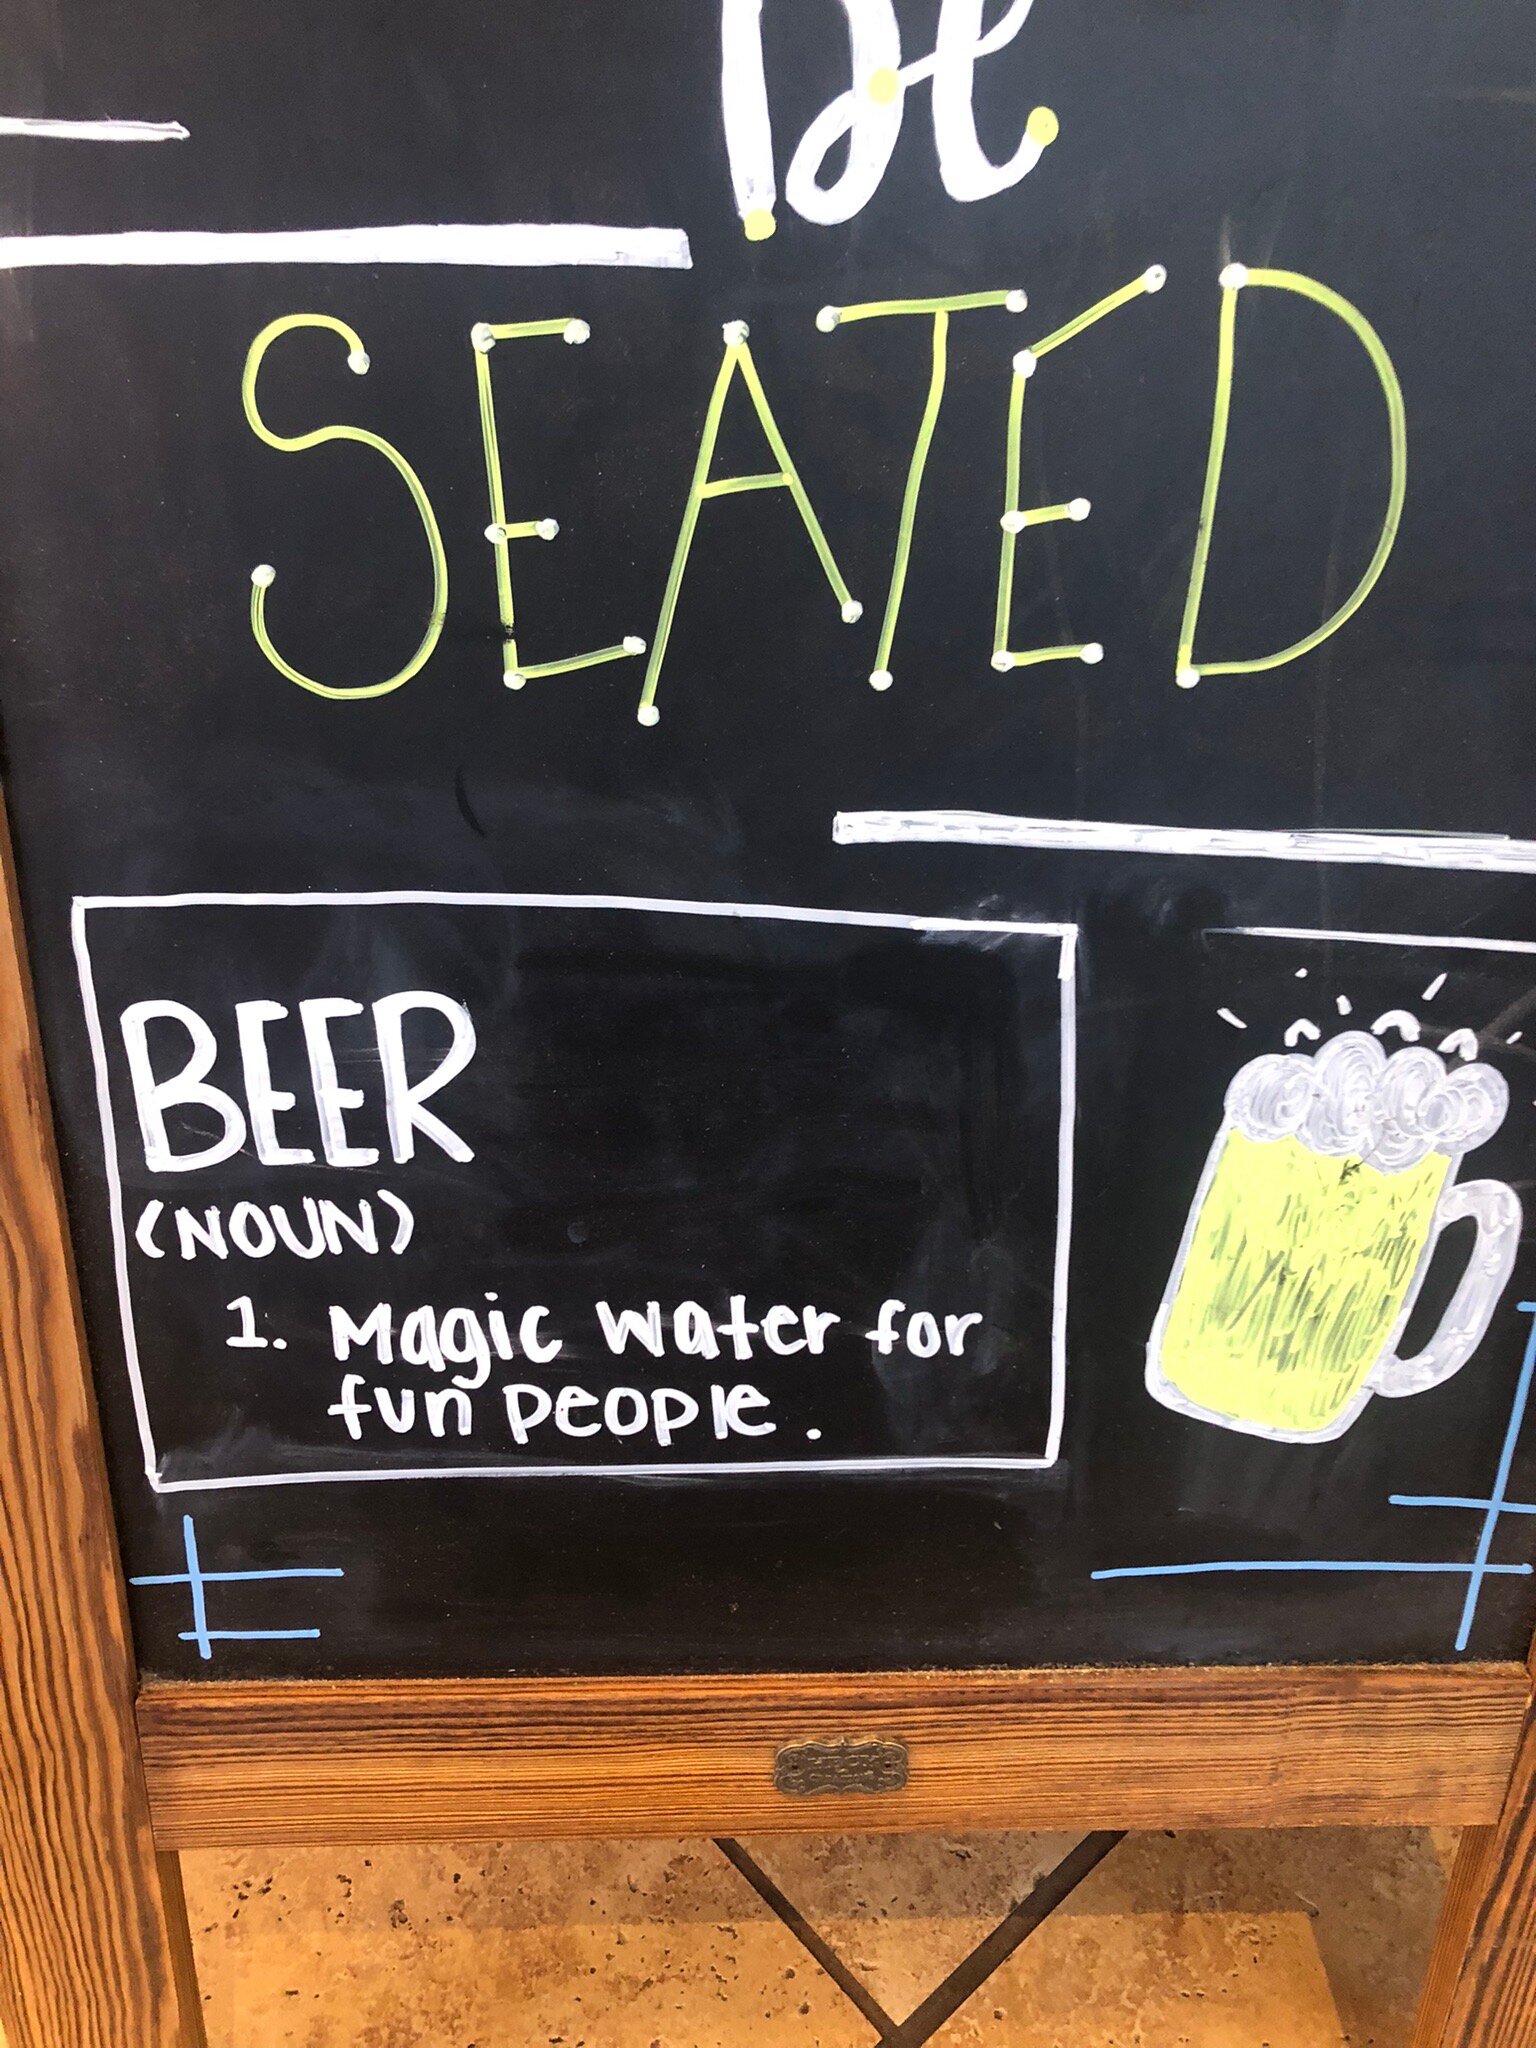 Be
SEATED
BEER
(NOUN)
1. Magic water for
fun people.